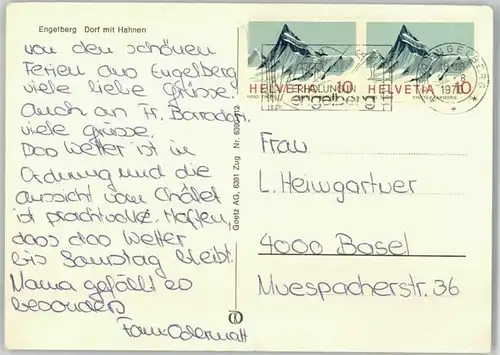 Engelberg Dorf mit Hahnen
von den schönen
Ferien aus Engelberg
viele liebe Grüsse!
auch an Fr.
viele Grüsse.
Das Wetter ist in
Ordnung und die
aussicht vom Châlet
ist prachtvoll. Hoffen,
dass das Wetter
bis Samstag bleibt.
Mama gefällt es
besonders
Fam. Odermatt
Goetz AG, 6301 Zug Nr.
HELVETIA 10
HELVETIA 10
ERHOLUNG IN
engelberg
ENGELBERG
Frau
L. Heimgartner
4000 Basel
Muespacherstr. 36